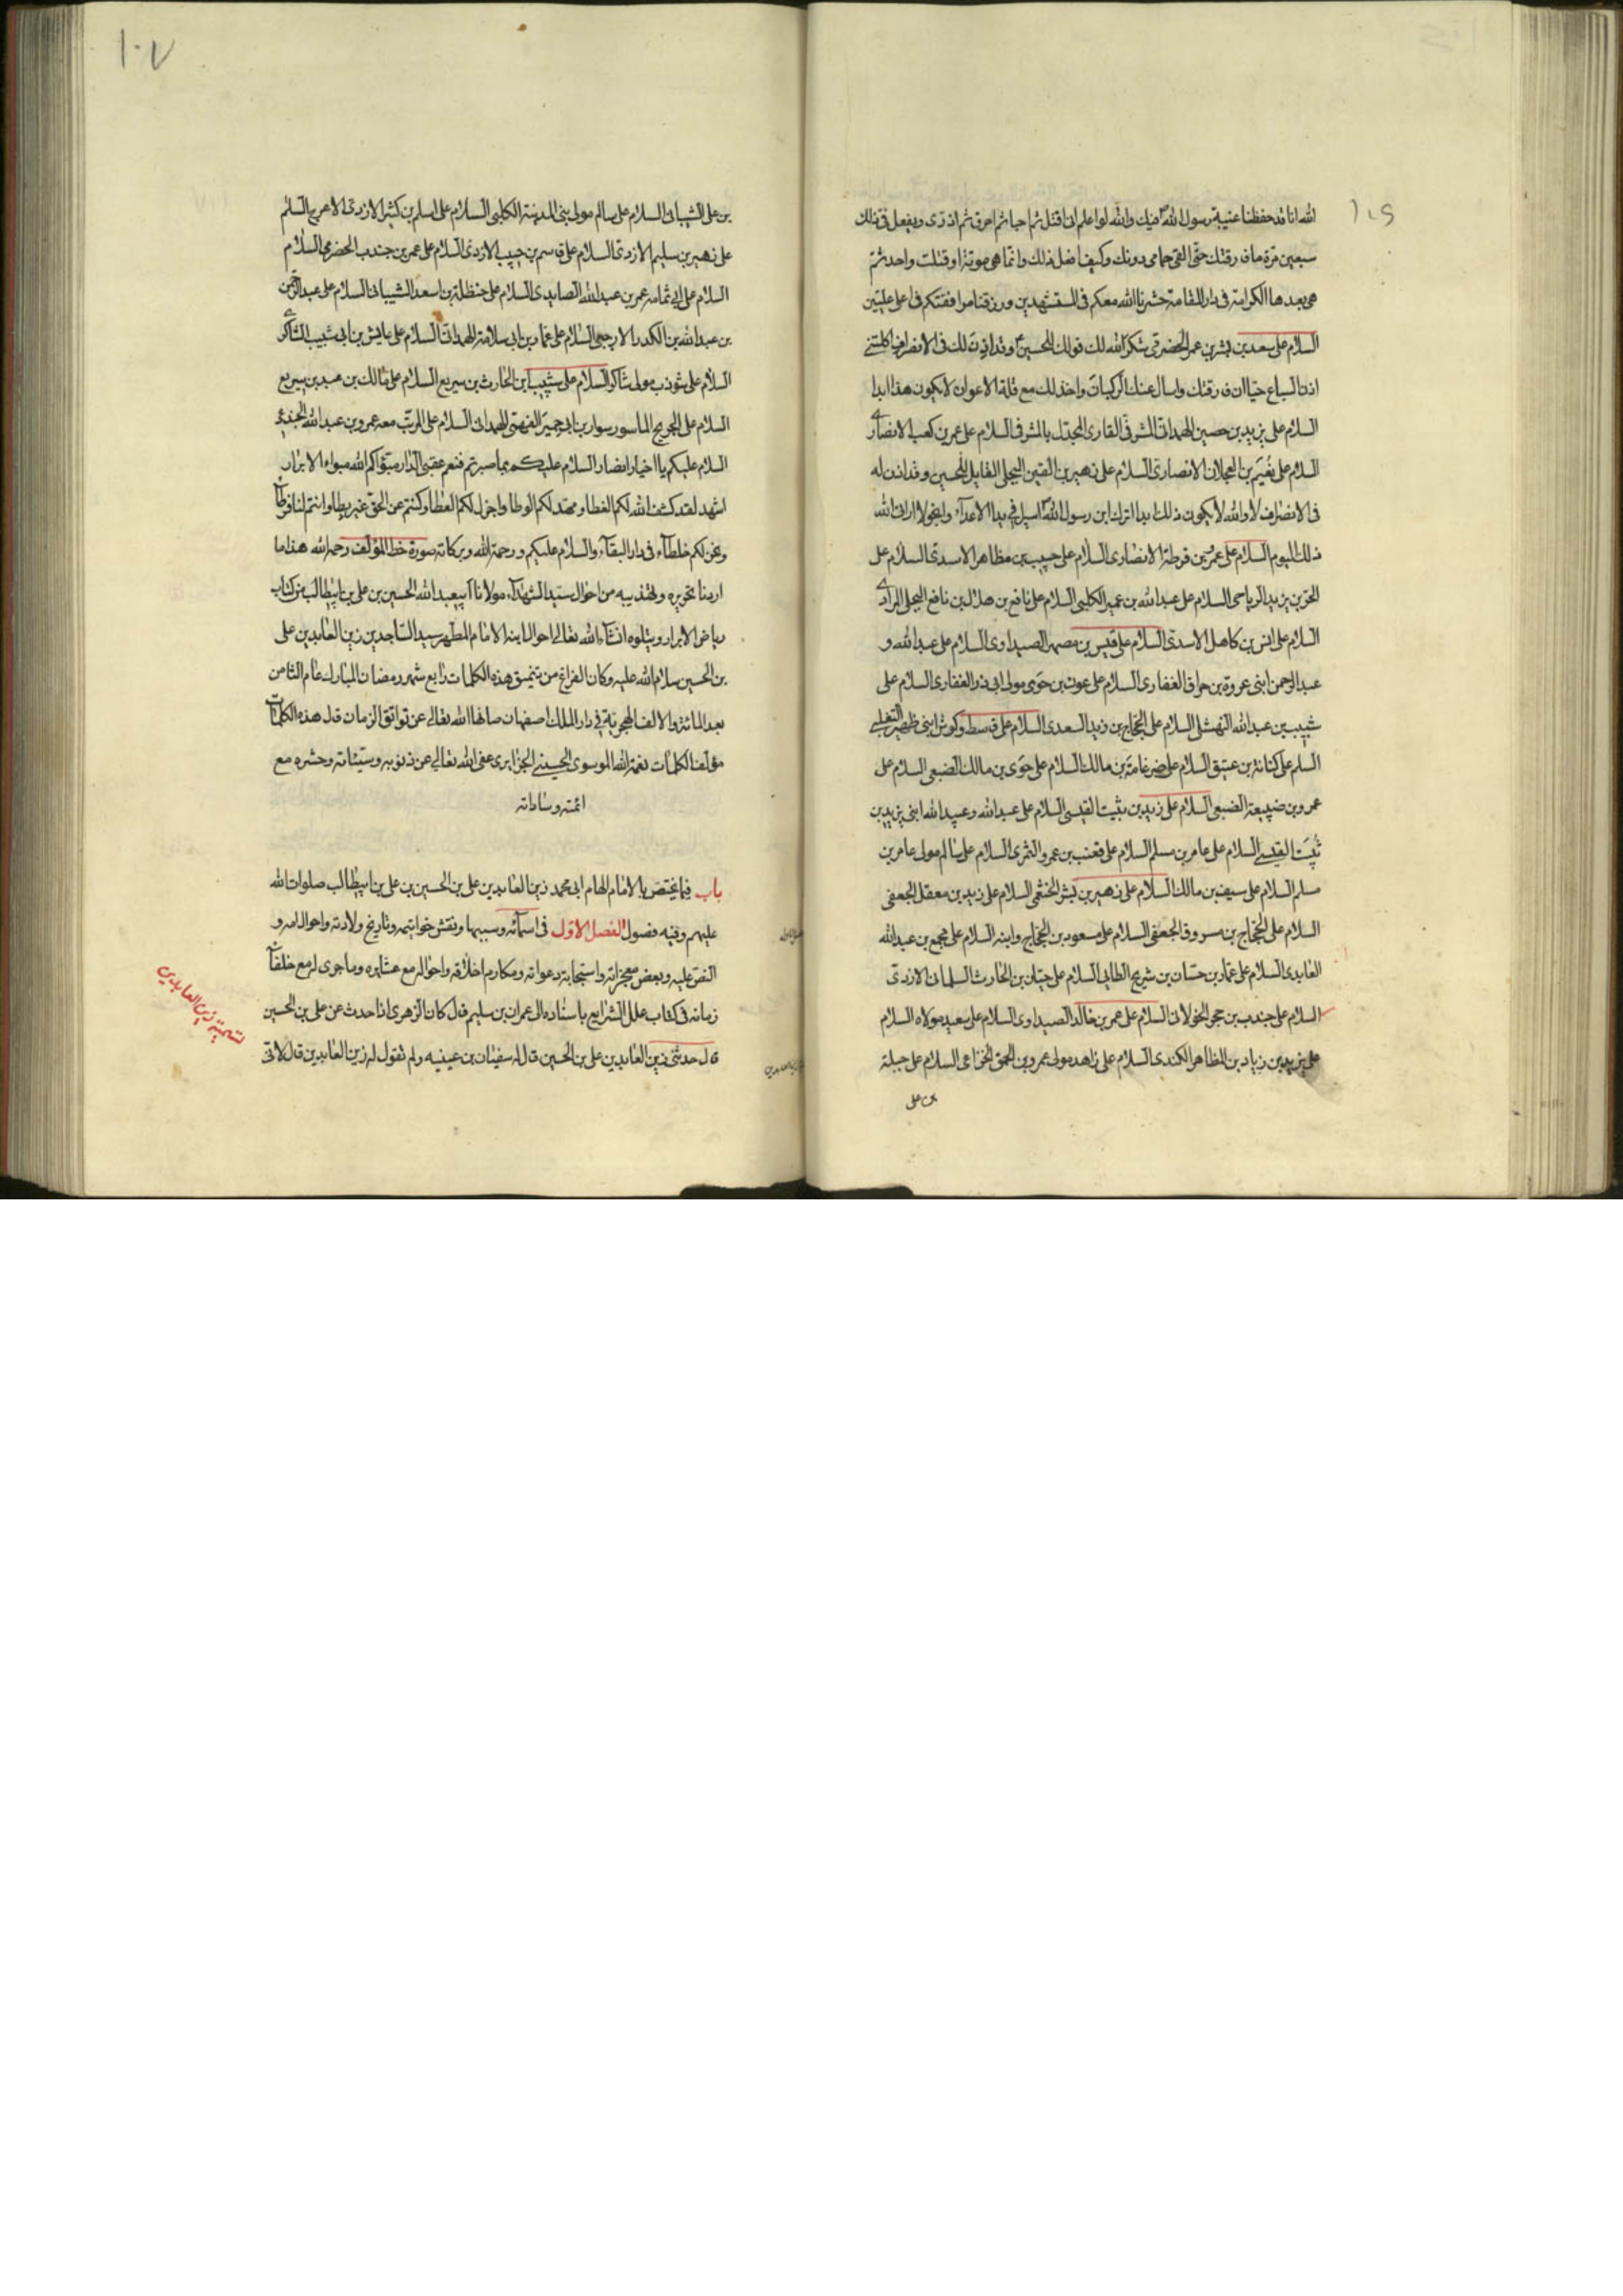 الله انا قد حفظنا غيبة رسول الله فيك والله لو اعلم انى اقتل ثم احيا ثم احرق ثم اذرى ويفعل بى ذلك
سبعين مرة ما فارقتك حتى القى حمامى دونك وكيف افعل ذلك وانما هى موتة او قتلة واحدة ثم
هى بعدها الكرامة فى دار المقامة حشرنا الله معكم فى المستشهدين ورزقنا مرافقتكم فى اعلى عليين
السلام على سعد بن بشر بن عمر الحضرمى شكر الله لك قولك للحسين وقد اذن لك فى الانصراف اكلتنى
اذن السباع حيا ان فارقتك واسال عنك الركبان واخذلك مع قلة الاعوان لا يكون هذا ابدا
السلام على يزيد بن حصين الهمدانى المشرفى القارى المجدل بالمشرفى السلام على عمر بن كعب الانصارى
السلام على نعيم بن العجلان الانصارى السلام على زهير بن القين البجلى القايل للحسين وقد اذن له
فى الانصراف لا والله لا يكون ذلك ابدا اترك ابن رسول الله اسيرا فى يد الاعداء وانجو لا ارانى الله
ذلك اليوم السلام على عمرو بن قرطة الانصارى السلام على حبيب بن مظاهر الاسدى السلام على
الحر بن يزيد الرياحى السلام على عبد الله بن عمير الكلبى السلام على نافع بن هلال بن نافع البجلى المرادى
السلام على انس بن كاهل الاسدى السلام على قيس بن مصهر الصيداوى السلام على عبد الله و
عبد الرحمن ابنى عروة بن حراق الغفارى السلام على عون بن حوى مولى ابى ذر الغفارى السلام على
شبيب بن عبد الله النهشلى السلام على الحجاج بن زيد السعدى السلام على قاسط وكرش ابنى ظهير التغلبى
السلم على كنانة بن عتيق السلام على ضرغامة بن مالك السلام على حوى بن مالك الضبعى السلام على
عمرو بن ضبيعة الضبعى السلام على زيد بن ثبيت القيسى السلام على عبد الله وعبيد الله ابنى يزيد بن
ثبيت القيسى السلام على عامر بن مسلم السلام على قعنب بن عمرو النمرى السلام على سالم مولى عامر بن
مسلم السلام على سيف بن مالك السلام على زهير بن بشر الخثعمى السلام على زيد بن معقل الجعفى
السلام على الحجاج بن مسروق الجعفى السلام على مسعود بن الحجاج وابنه السلام على مجمع بن عبد الله
العايدى السلام على عمار بن حسان بن شريح الطايى السلام على حيان بن الحارث السلمانى الازدى
السلام على جندب بن حجر الخولانى السلام على عمر بن خالد الصيداوى السلام على سعيد مولاه السلام
على يزيد بن زياد بن المظاهر الكندى السلام على زاهد مولى عمرو بن الحمق الخزاعى السلام على جبلة
بن على
١٠٧
بن على الشيبانى السلام على سالم مولى بنى المدينة الكلبى السلام على اسلم بن كثير الازدى الاعرج السلام
على زهير بن سليم الازدى السلام على قاسم بن حبيب الازدى السلام على عمر بن جندب الحضرمى السلام
السلام على ابى ثمامه عمر بن عبد الله الصايدى السلام على حنظلة بن اسعد الشيبانى السلام على عبد الرحمن
بن عبد الله بن الكدر الارحبى السلام على عمار بن ابى سلامة الهمدانى السلام على عابس بن ابى شبيب الشاكرى
السلام على شوذب مولى شاكر السلام على شبيب بن الحارث بن سريع السلام على مالك بن عبد بن سريع
السلام على الجريح الماسور سوار بن ابى حمير الفهمى الهمدانى السلام على المرتث معه عمرو بن عبد الله الجندعى
السلام عليكم يا اخيار انصار السلام عليكم بما صبرتم فنعم عقبى الدار مبوّاكم الله مبواء الابرار
اشهد لقد كشف الله لكم الغطا ومهد لكم الوطا واجزل لكم العطا وكنتم عن الحق غير بطا وانتم لنا فرطا
ونحن لكم خلطآء فى دار البقآء والسلام عليكم ورحمة الله وبركاته صورة خط المؤلف رحمه الله هذا ما
اردنا تحريره وتهذيبه من احوال سيد الشهدآء مولانا ابيعبد الله الحسين بن على بن ابيطالب من كتاب
رياض الابرار ويتلوه انشآء الله تعالى احوال ابنه الامام المطهر سيد الساجدين زين العابدين على
بن الحسين سلام الله عليه وكان الفراغ من تنميق هذه الكلمات رابع شهر رمضان المبارك عام الثامن
بعد المائة والالف الهجرية فى دار الملك اصفهان صانها الله تعالى عن نوائق الزمان قال هذه الكلمات
مؤلف الكلمات نعمة الله الموسوى الحسينى الجزايرى عفى الله تعالى عن ذنوبه وسيئاته وحشره مع
ائمته وساداته
باب فيما يختص بالامام الهمام ابى محمد زين العابدين على بن الحسين بن على بن ابيطالب صلوات الله
عليهم وفيه فصول الفصل الاول فى اسمائه وسببها ونقش خواتيمه وتاريخ ولادته واحوال امه و
النص عليه وبعض معجزاته واستجابة دعواته ومكارم اخلاقه واحواله مع عشايره وما جرى له مع خلفآء
زمانه فى كتاب علل الشرايع باسناده الى عمران بن سليم قال كان الزهرى اذا حدث عن على بن الحسين
قال حدثنى زين العابدين على بن الحسين قال له سفيان بن عيينه ولم تقول له زين العابدين قال لانى
تسميته زين العابدين